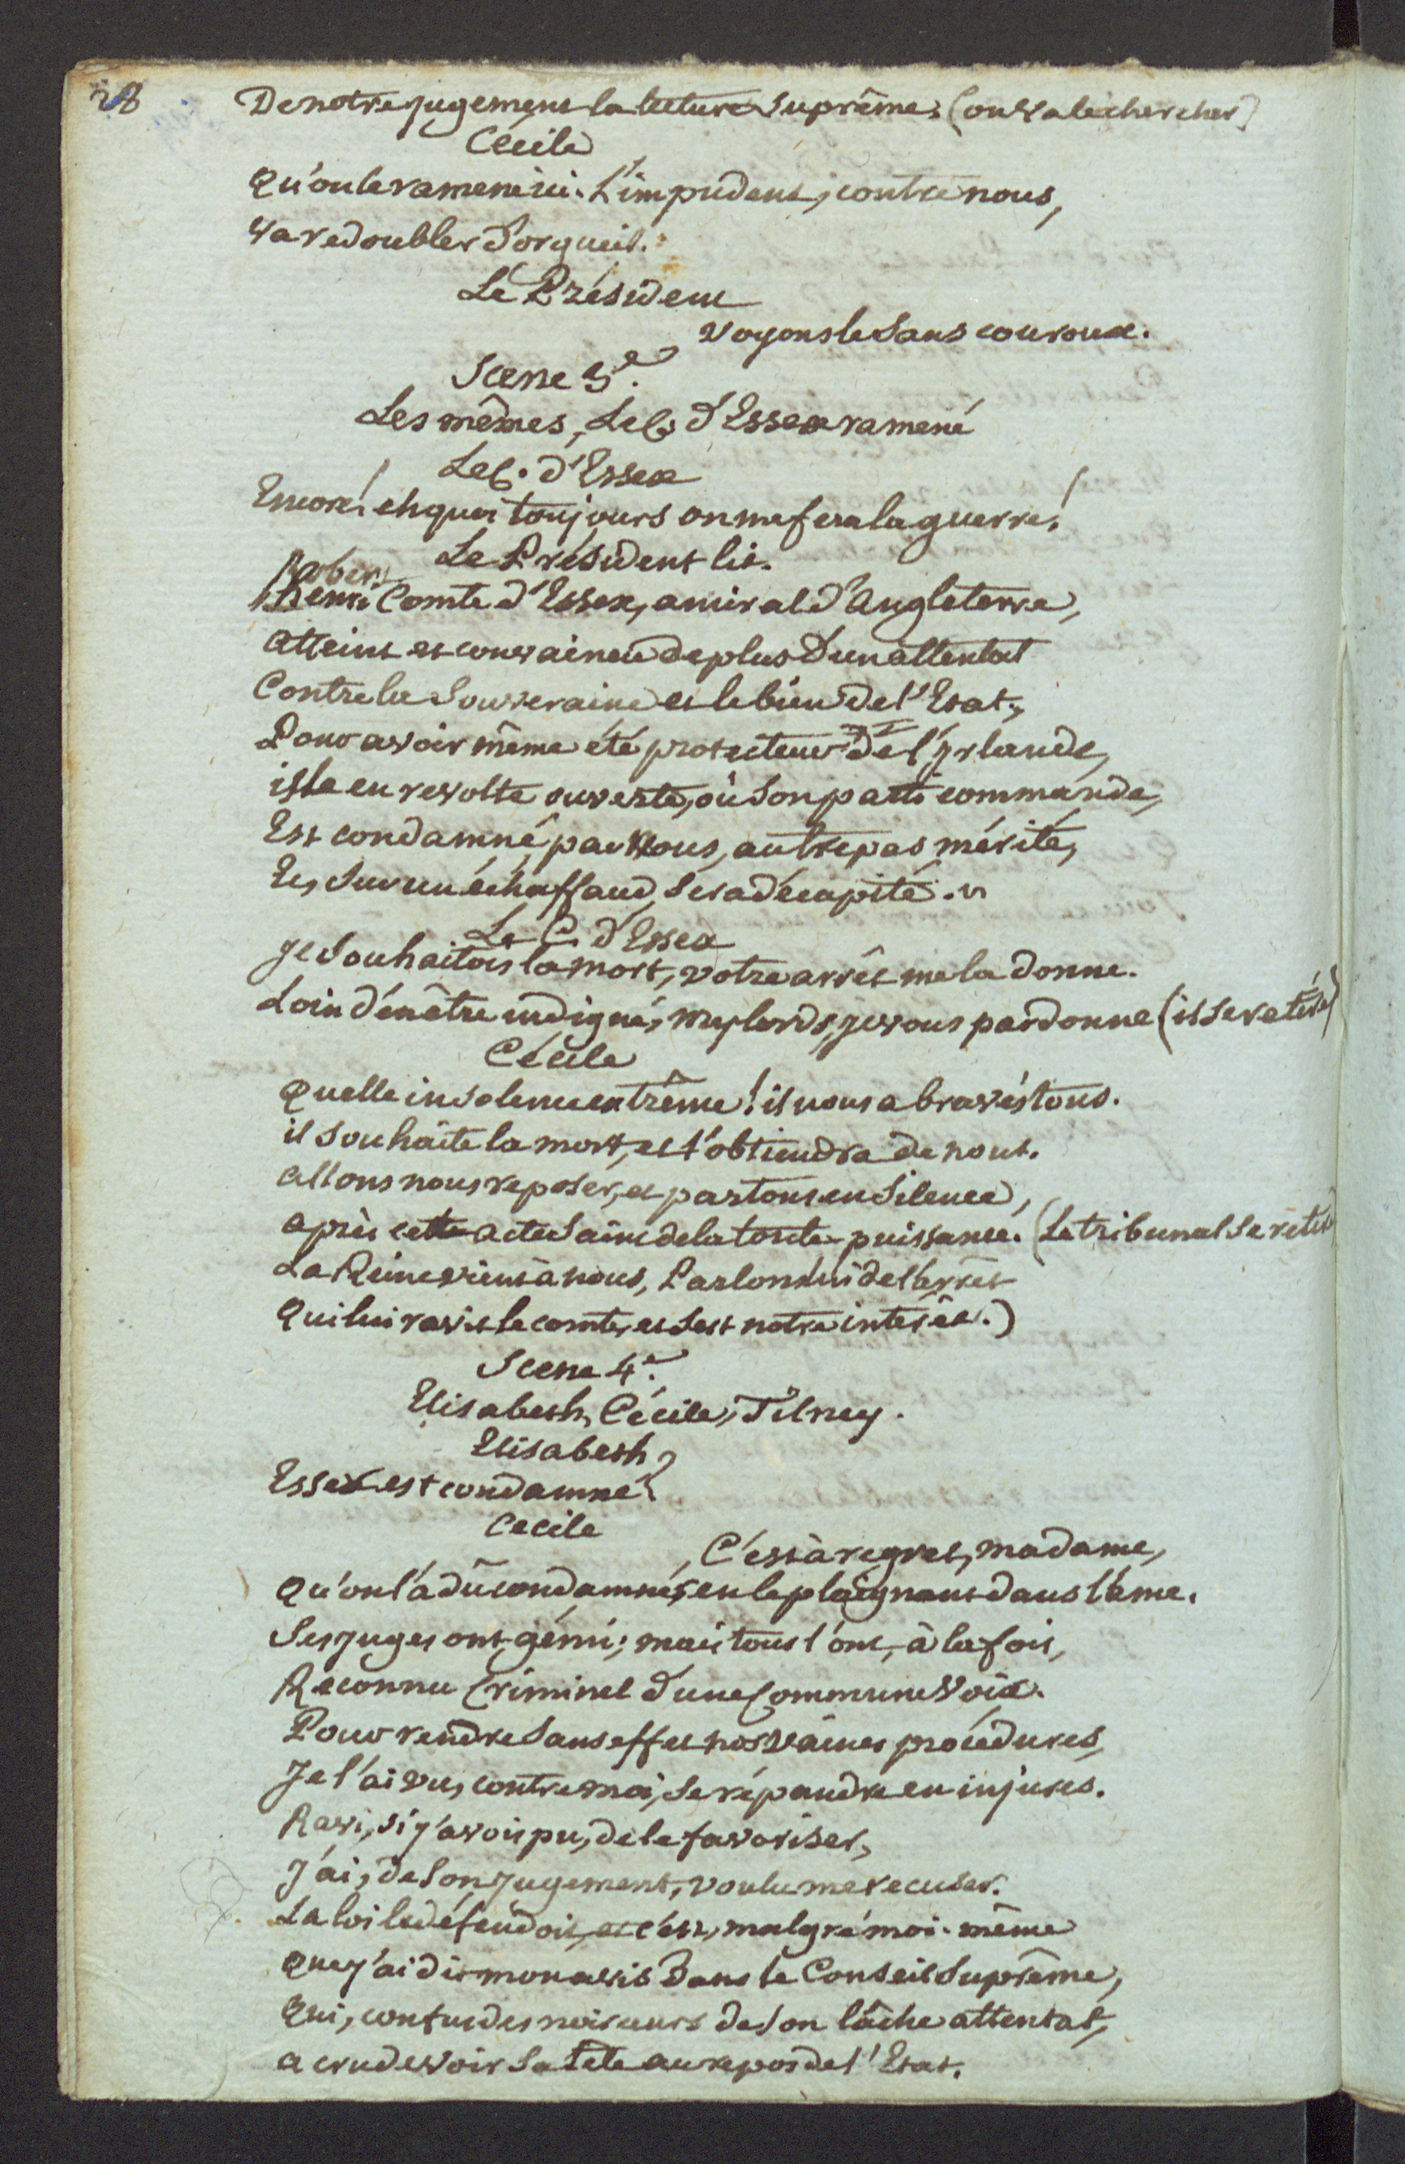 28
De notre jugement la lecture suprême. (on va le chercher)
Cécile
Qu'on le ramene ici. L'impudent, contre nous,
va redoubler d'orgueil.
Le Président
voyons le sans couroux.
Scene 3e.
Les mêmes, Le C. d'Essex ramené
Le C. d'Essex
Encore! eh quoi toujours on me fera la guerre!
Le Président lit.
Robert
Henri Comte d'Essex, amiral d'angleterre,
atteint et convaincu de plus d'un attentat
Contre la Souveraine et le bien de l'Etat,
Pour avoir même été protecteur de l'yrlande,
isle en revolte ouverte, où son parti commande,
Est condamné par nous, au trepas mérité,
Et, sur un échaffaud, sera décapité. "
Le C. d'Essex
Je souhaitois la mort, votre arrêt me la donne.
Loin d'en être indigné, mylords, je vous pardonne (il se retire)
Cécile
Quelle insolence extrême! il nous a bravés tous.
il souhaite la mort, et l'obtiendra de nous.
allons nous reposer, et partons en silence,
après cette acte saint de la toute-puissance. (Le tribunal se retire)
La Reine vient à nous, Parlons lui de l'arrêt
Qui lui ravit le comte, et sert notre intérêt.)
Scene 4e.
Elisabeth, Cécile, Tilney.
Elisabeth
Essex est condamné?
Cecile
C'est à regret, madame,
Qu'on l'a dû condamner, en le plaignant dans l'âme.
Ses juges ont gémi; mais tous l'ont, à la fois,
Reconnu Criminel d'une Commune voix.
Pour rendre sans effet nos vaines procédures,
Je l'ai vu, contre moi, se répandre en injures.
Ravi, si j'avois pu, de le favoriser,
J'ai, de son jugement, voulu me recuser.
La loi le défendoit, et c'est, malgré moi-même
Que j'ai dit mon avis Dans le Conseil Suprême,
Qui, confus des noirceurs de son lâche attentat,
a cru devoir sa tête au repos de l'Etat.